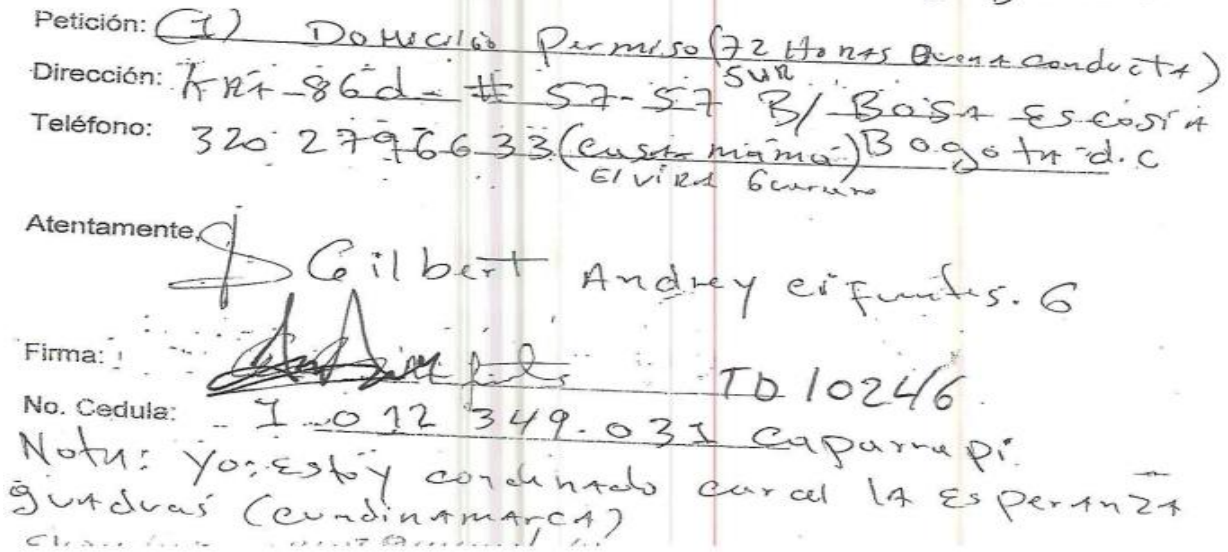 Petición: (1) Domicilio Permiso (72 Horas Buena conducta)
Dirección: KRA-86d-# 57-57 SUR B/ BOSA ESCOSIA
Teléfono: 320 2796633 (casa mamá) Bogota-d.c
ElVIRA
Atentamente,
Gilbert Andrey cifuentes. G
Firma: TD 10246
No. Cedula: 1.012 349.031 caparrapi.
Nota: Yo: Estoy condenado carcel lA EsperanzA
guaduas (cundinAmArcA)